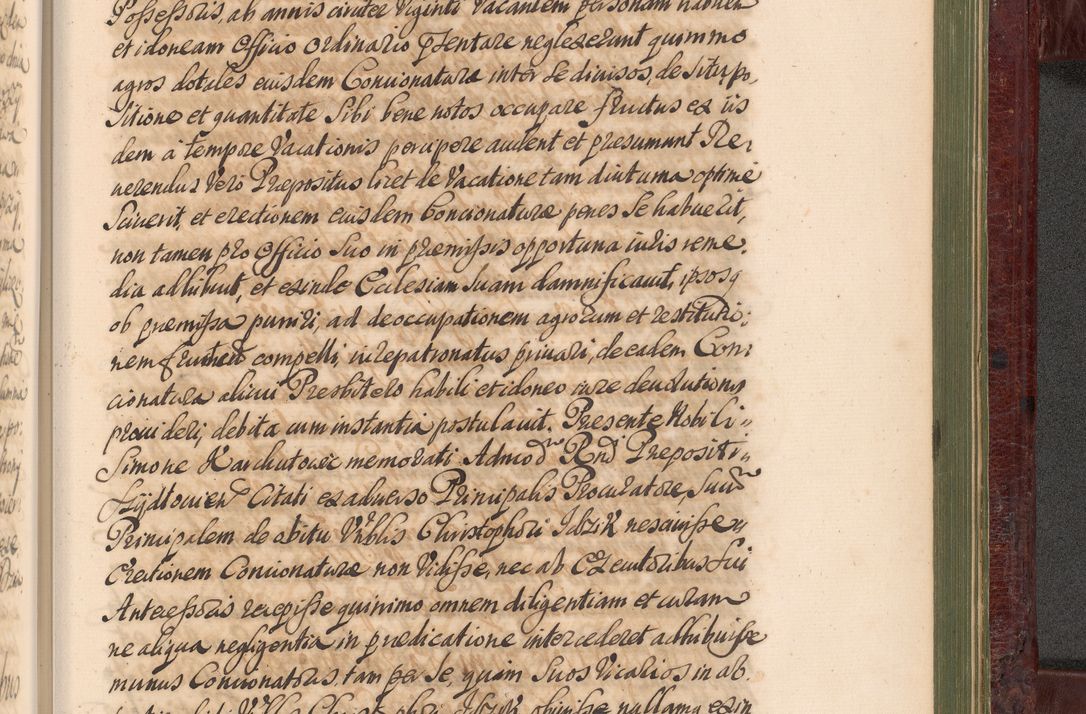 Possessoris, ab annis circiter Viginti Vacantem personam habilem
et idoneam Officio Ordinario pṣentare neglexerunt quinimo
agros dotales eiusdem Concionaturæ inter se divisos, de situ po,
sitione et quantitate sibi bene notos occupare fructus ex iis
dem à tempore Vacationis percipere audent et presumunt Re,
verendus Vero Præpositus licet de Vacatione tam diuturna optime
Sciverit, et erectionem eiusdem Concionaturæ penes se habuerit,
non tamen pro Officio suo in præmissis opportuna iuris reme,
dia adhibuit, et exinde Ecclesiam suam damnificavit, ipsosq
ob præmissa puniri, ad deoccupationem agrorum et restitutio:
nem fructuum compelli, iurepatronatus privari, de eadem Con:
cionatura alicui Presbitero habili et idoneo iure devolutionis
provideri, debita cum instantia postulavit. Presente Nobili,,
Simone Karchutowic memorati Admod Rnd Præpositi,,
Citati ex adverso Principalis Procuratore, Suum
Principalem de obitu Vrblis Christophori Idzik nescivisse,,
Erectionem Concionaturæ non Vidisse, nec ab Exequutoribus Sui
Antecessoris recepisse quinimo omnem diligentiam et curam
ne aliqua negligentia in prædicatione intercederet adhibuisse
munus Concionatoris, tam per se, quam suos Vicarios in ab,